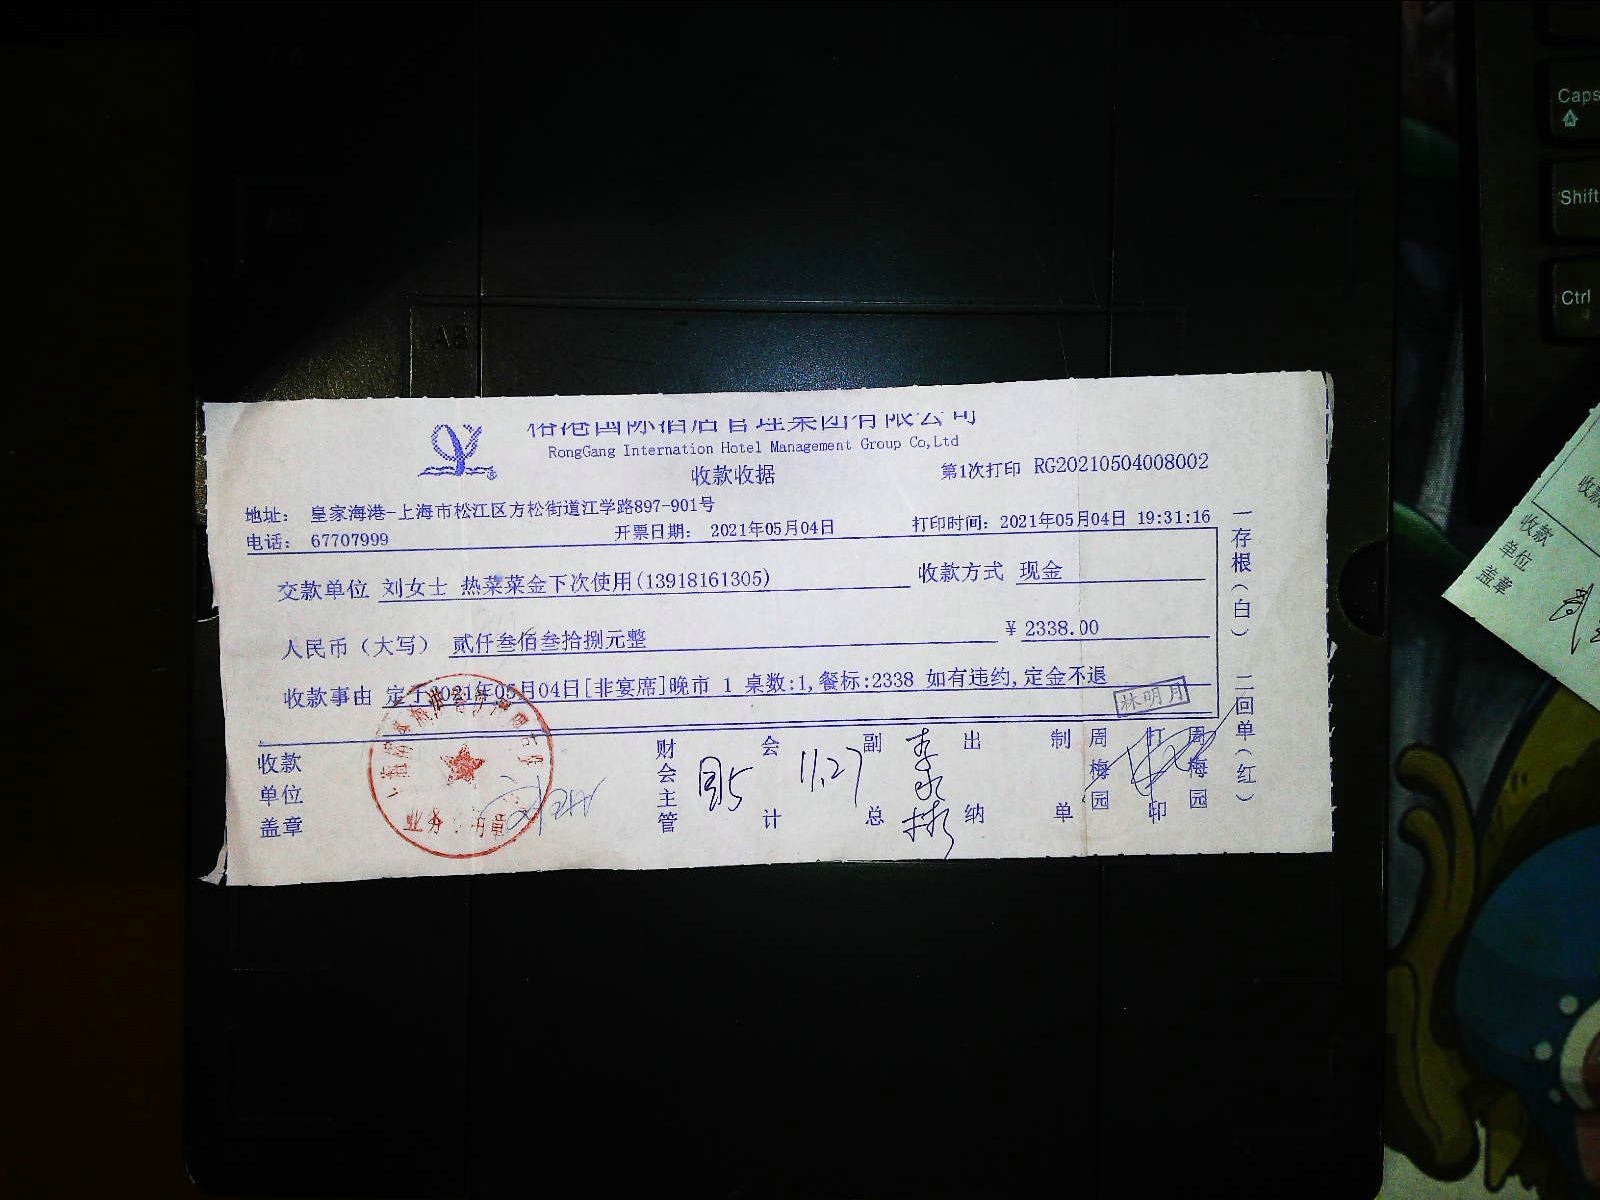 裕港国际酒店管理集团有限公司
RongGang Internation Hotel Management Group Co,Ltd
收款收据
第1次打印 RG20210504008002
地址： 皇家海港-上海市松江区方松街道江学路897-901号
电话： 67707999
开票日期： 2021年05月04日
打印时间：2021年05月04日 19:31:16
交款单位 刘女士 热菜菜金下次使用(13918161305)
收款方式 现金
人民币（大写） 贰仟叁佰叁拾捌元整
¥ 2338.00
收款事由 定于2021年05月04日[非宴席]晚市 1 桌数:1,餐标:2338 如有违约,定金不退
林明月
收款单位盖章
业务专用章
财会主管
会计
11.27
副总
出纳
制单
周梅园
打印
周梅园
一存根(白)
二回单(红)
收款
单位
盖章
Caps
Shift
Ctrl